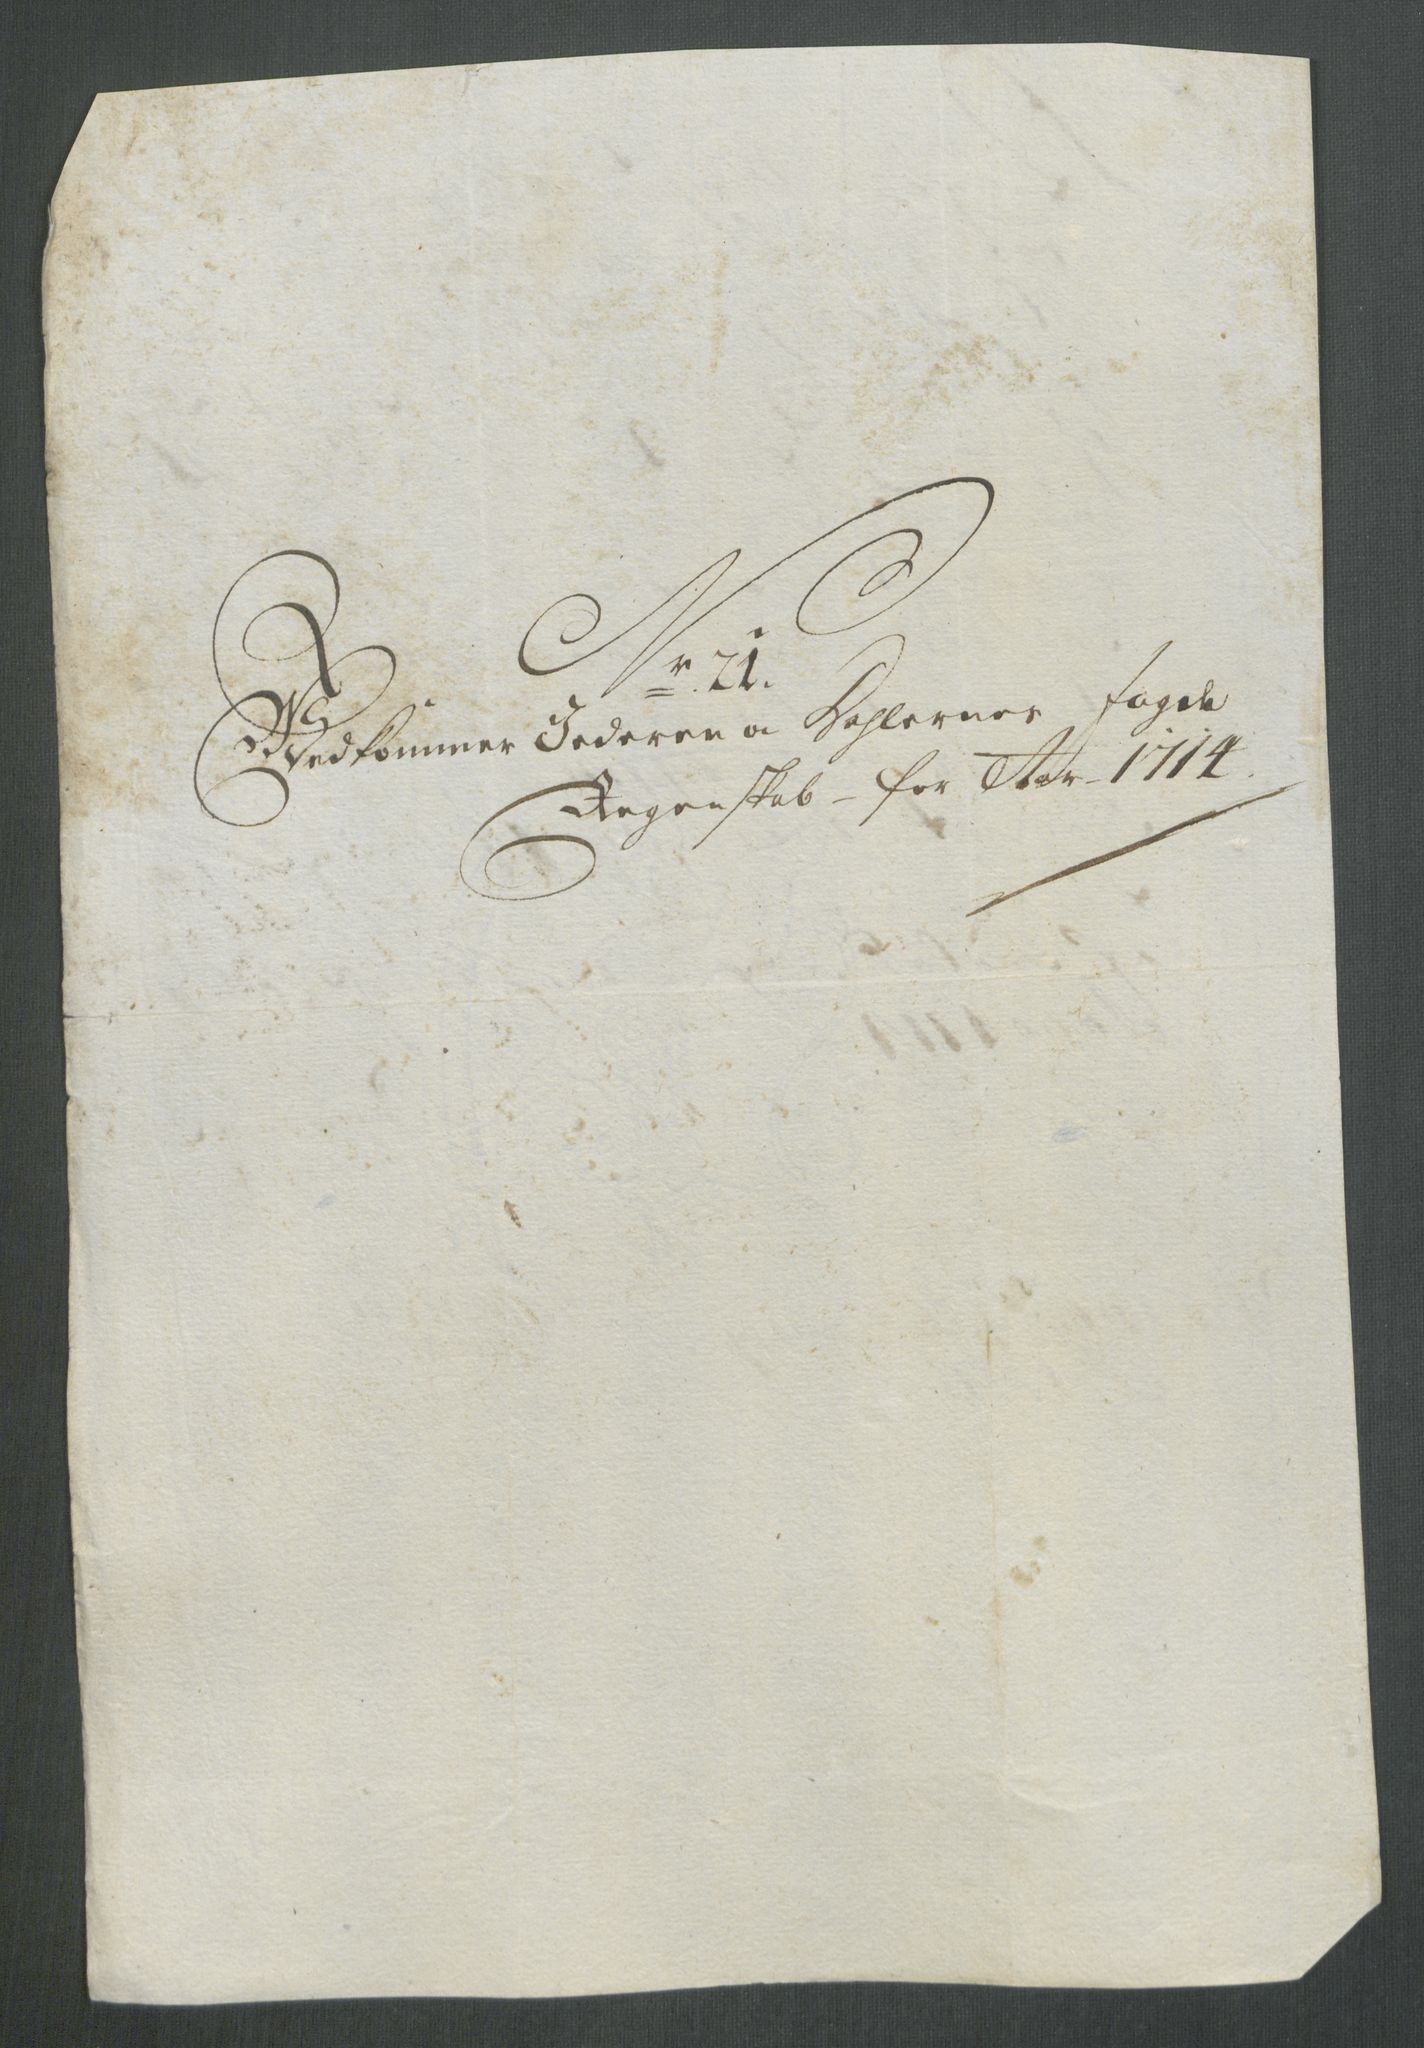 Nr. 21.
Vedkommer Jederen a Dahlernes fogde
Regenskab - for Aar - 1714.